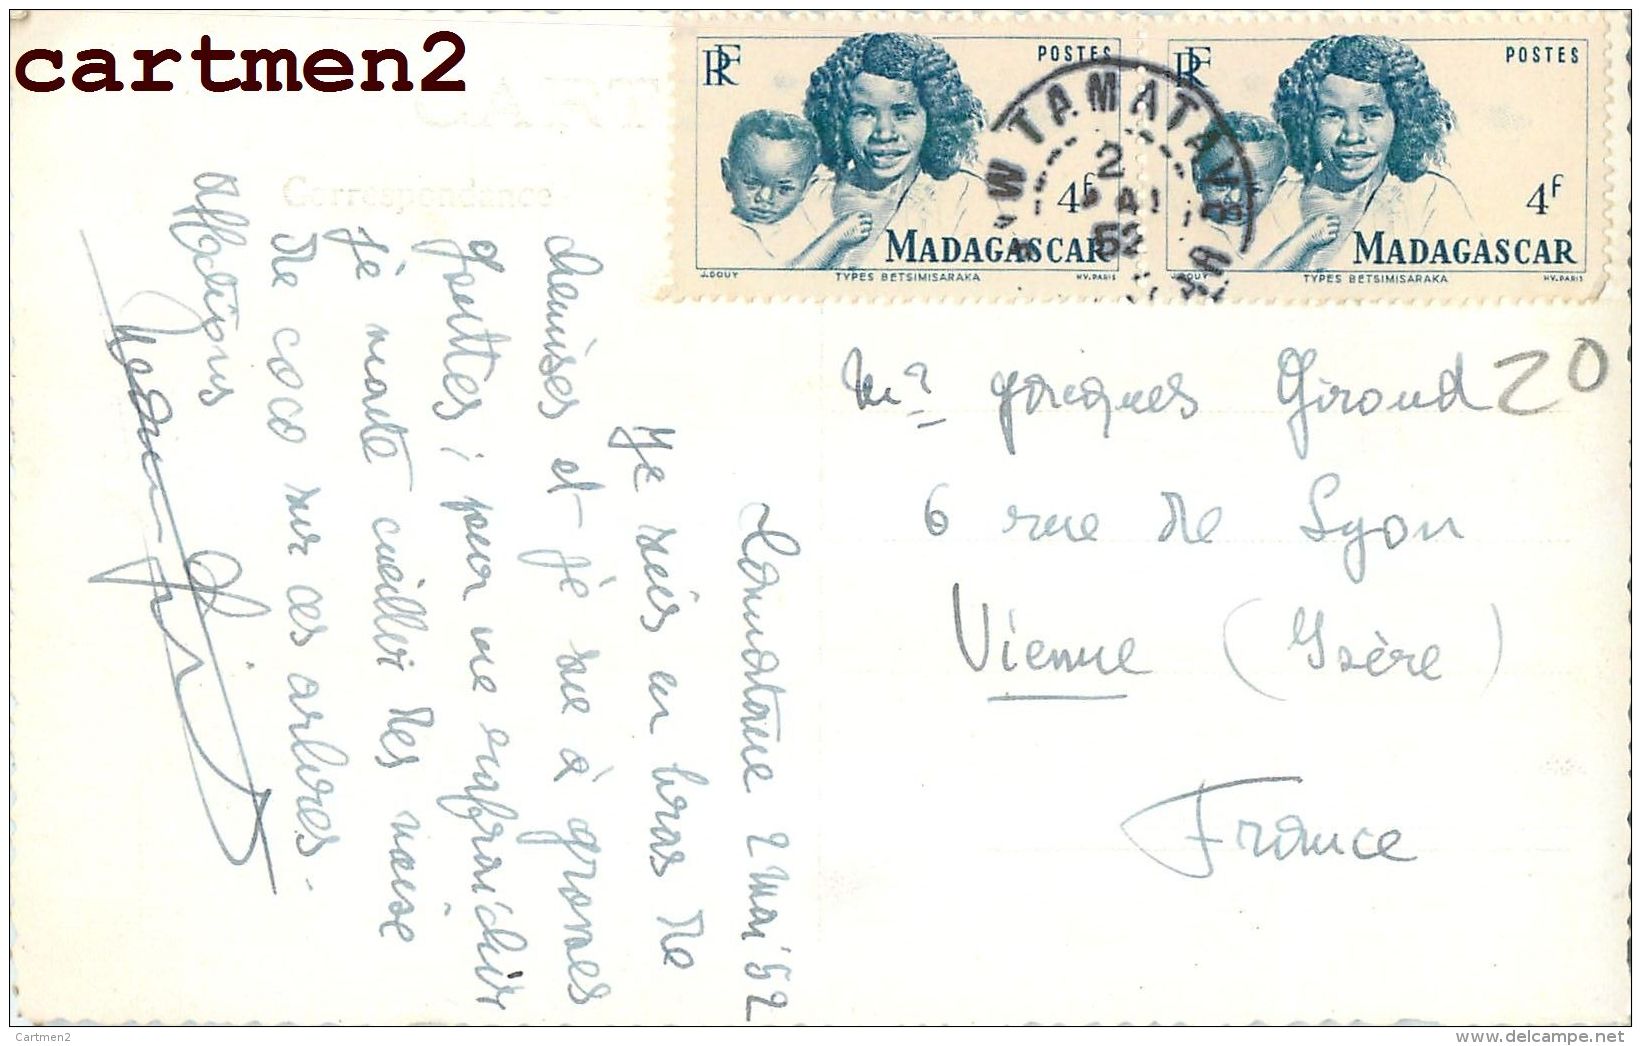 cartmen2
CARTE
Correspondance
RF
POSTES
4F
MADAGASCAR
J. DOUY
TYPES BETSIMISARAKA
HV. PARIS
RF
POSTES
4F
MADAGASCAR
J. DOUY
TYPES BETSIMISARAKA
HV. PARIS
TAMATAVE
2
MAI
52
2 mai 52
Je suis en bras de
chemises et je sue à grosses
gouttes ; pour me rafraichir
je monte cueillir des noise
de coco sur ces arbres.
Affectueus
Mr Jacques Giroud
20
6 rue de Lyon
Vienne (Isère)
France
Cartmen2
www.delcampe.net